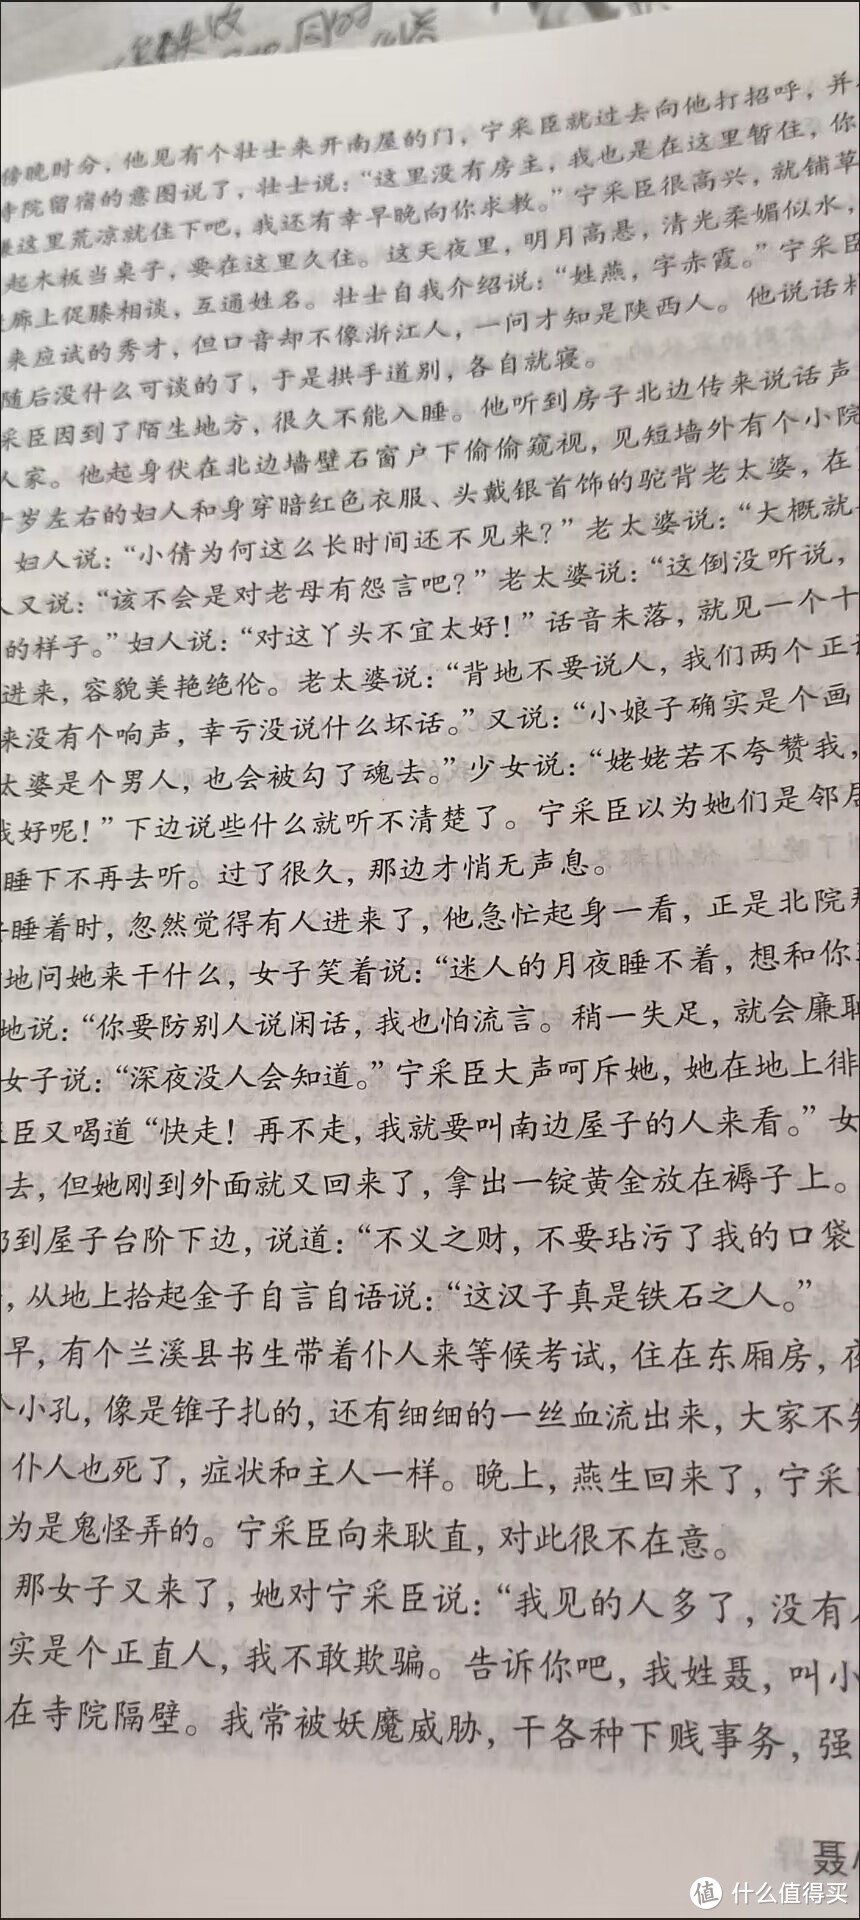 傍晚时分，他见有个壮士来开南屋的门，宁采臣就过去向他打招呼，并
寺院留宿的意图说了，壮士说：“这里没有房主，我也是在这里暂住，你
这里荒凉就住下吧，我还有幸早晚向你求教。”宁采臣很高兴，就铺草
起木板当桌子，要在这里久住。这天夜里，明月高悬，清光柔媚似水，
廊上促膝相谈，互通姓名。壮士自我介绍说：“姓燕，字赤霞。”宁采臣
来应试的秀才，但口音却不像浙江人，一问才知是陕西人。他说话
随后没什么可谈的了，于是拱手道别，各自就寝。
采臣因到了陌生地方，很久不能入睡。他听到房子北边传来说话声
人家。他起身伏在北边墙壁石窗户下偷偷窥视，见短墙外有个小院
十岁左右的妇人和身穿暗红色衣服、头戴银首饰的驼背老太婆，在
妇人说：“小倩为何这么长时间还不见来？”老太婆说：“大概就
人又说：“该不会是对老母有怨言吧？”老太婆说：“这倒没听说，
的样子。”妇人说：“对这丫头不宜太好！”话音未落，就见一个十
进来，容貌美艳绝伦。老太婆说：“背地不要说人，我们两个正
来没有个响声，幸亏没说什么坏话。”又说：“小娘子确实是个画
太婆是个男人，也会被勾了魂去。”少女说：“姥姥若不夸赞我，
我好呢！”下边说些什么就听不清楚了。宁采臣以为她们是邻居
睡下不再去听。过了很久，那边才悄无声息。
睡着时，忽然觉得有人进来了，他急忙起身一看，正是北院那
地问她来干什么，女子笑着说：“迷人的月夜睡不着，想和你
地说：“你要防别人说闲话，我也怕流言。稍一失足，就会廉耻
女子说：“深夜没人会知道。”宁采臣大声呵斥她，她在地上徘
臣又喝道“快走！再不走，我就要叫南边屋子的人来看。”女
去，但她刚到外面就又回来了，拿出一锭黄金放在褥子上。
扔到屋子台阶下边，说道：“不义之财，不要玷污了我的口袋
，从地上拾起金子自言自语说：“这汉子真是铁石之人。”
早，有个兰溪县书生带着仆人来等候考试，住在东厢房，夜
个小孔，像是锥子扎的，还有细细的一丝血流出来，大家不知
仆人也死了，症状和主人一样。晚上，燕生回来了，宁采
为是鬼怪弄的。宁采臣向来耿直，对此很不在意。
那女子又来了，她对宁采臣说：“我见的人多了，没有
实是个正直人，我不敢欺骗。告诉你吧，我姓聂，叫小
在寺院隔壁。我常被妖魔威胁，干各种下贱事务，强
聂
值 什么值得买